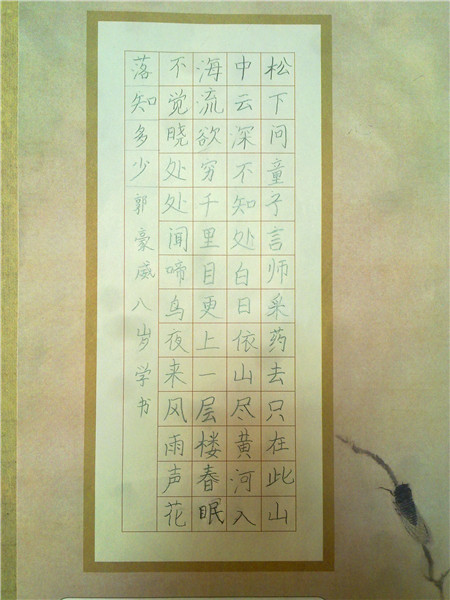 松下问童子言师采药去只在此山
中云深不知处白日依山尽黄河入
海流欲穷千里目更上一层楼春眠
不觉晓处处闻啼鸟夜来风雨声花
落知多少郭豪威八岁学书